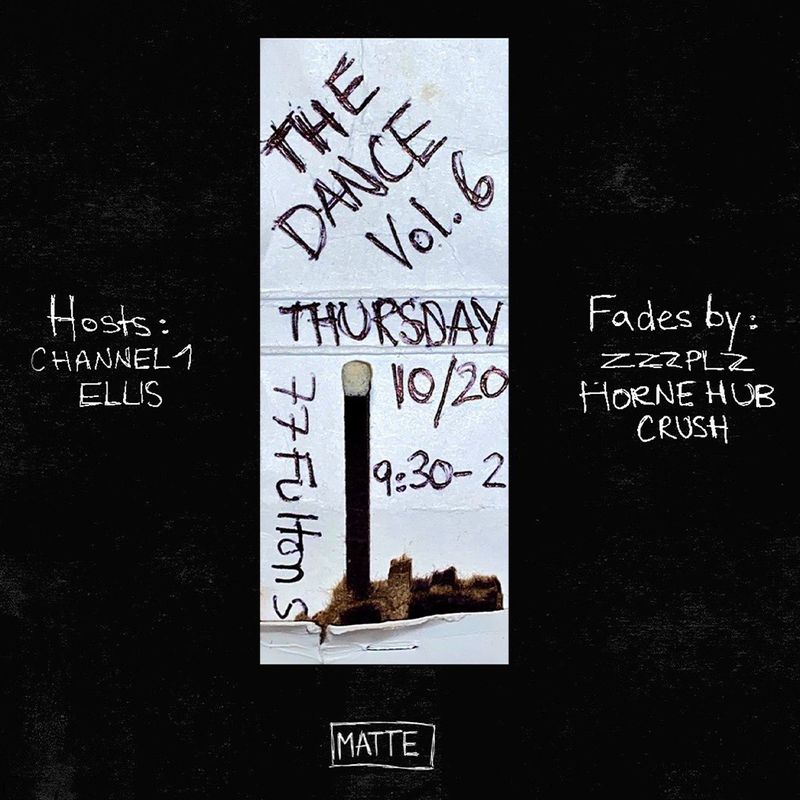 THE
DANCE
Vol. 6
THURSDAY
10/20
9:30-2
77 Fulton S
Hosts:
CHANNEL 1
ELLIS
Fades by:
ZZZPLZ
HORNE HUB
CRUSH
MATTE